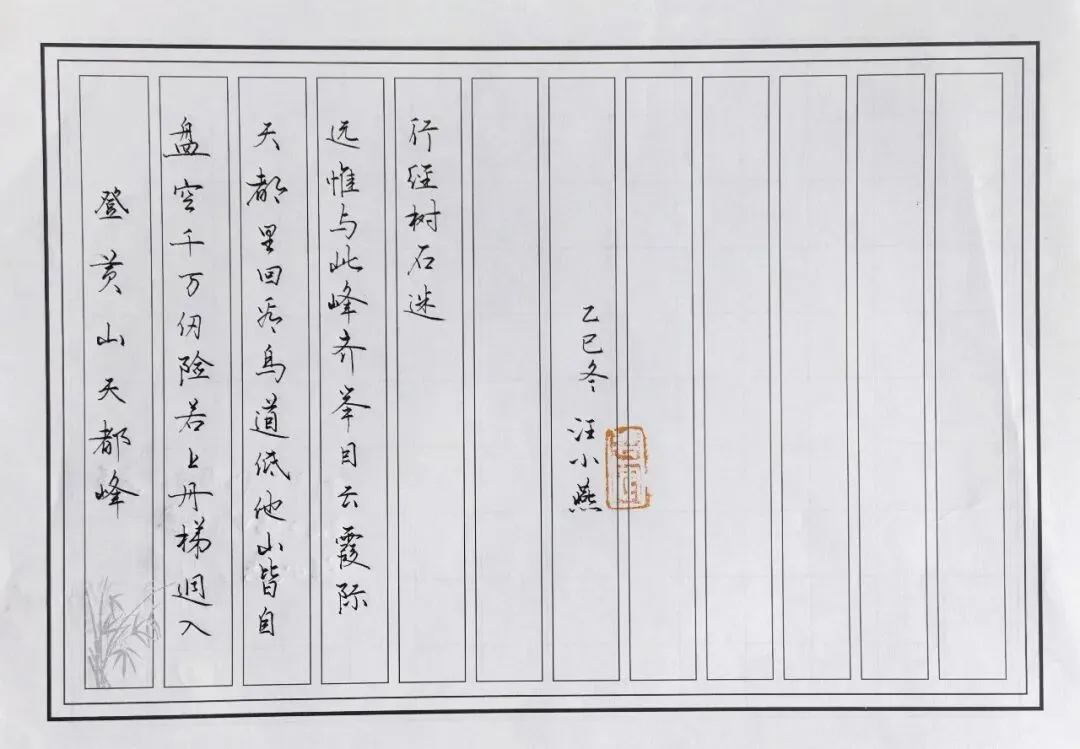 登黄山天都峰
盘空千万仞险若上丹梯迥入
天都里回看鸟道低他山皆自
远惟与此峰齐举目云霞际
行经树石迷
乙巳冬 汪小燕